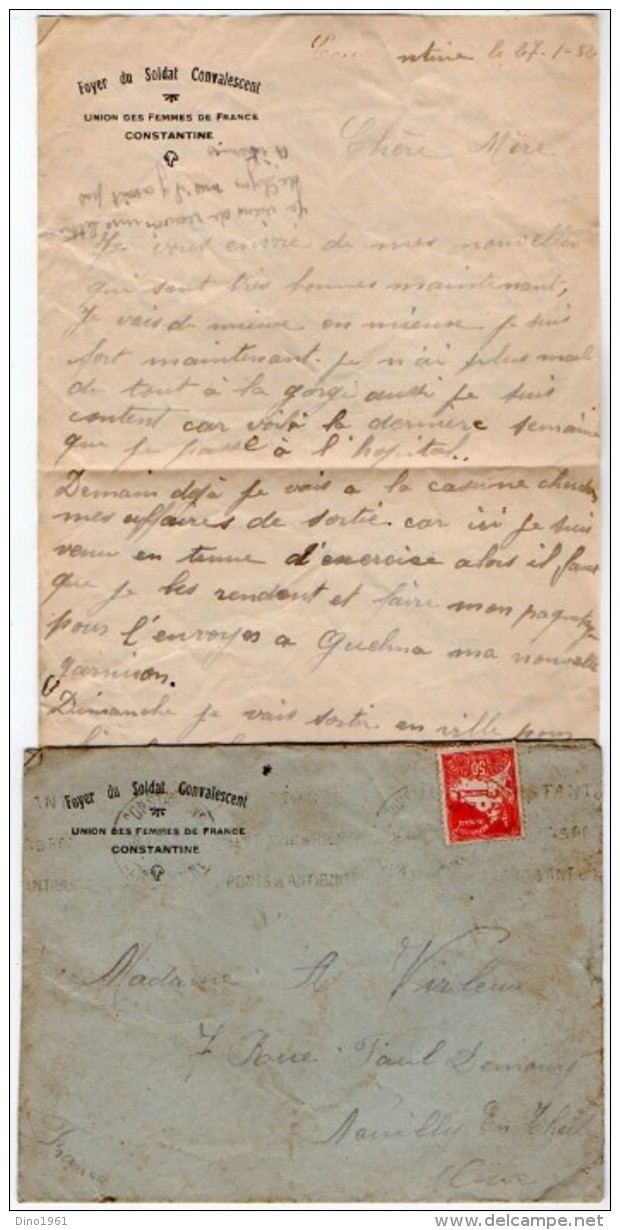 Constantine le 27-1-32
Foyer du Soldat Convalescent
UNION DES FEMMES DE FRANCE
CONSTANTINE
Chère Mère
Je vous envoie de mes nouvelles
qui sont très bonnes maintenant,
Je vais de mieux en mieux je suis
fort maintenant. je n'ai plus mal
du tout à la gorge aussi je suis
content car voilà la dernière semaine
que je passe à l'hopital..
Demain déjà je vais a la caserne
mes affaires de sortie. car ici je suis
venu en tenue d'exercise alors il faut
que je les rendent et faire mon paquetage
pour l'envoyes a Guelma ma nouvelle
garnison.
Dimanche je vais sortir en ville pour
Foyer du Soldat Convalescent
UNION DES FEMMES DE FRANCE
CONSTANTINE
50
Madame A
7 Rue Paul
Neuilly En Thelle
Oise
France
Dino1961